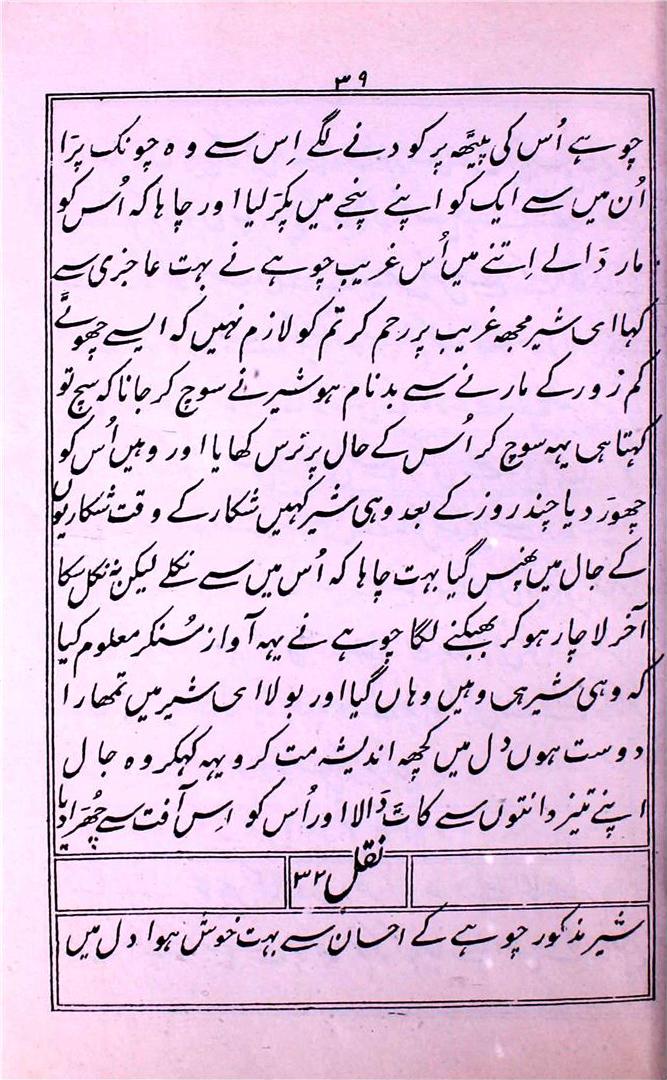 ۳۹
چوہے اُس کی پیٹھہ پر کودنے لگے اِس سے وہ چونک پڑا
اُن میں سے ایک کو اپنے پنجے میں پکڑ لیا اور چاہا کہ اُس کو
مار ڈالے اِتنے میں اُس غریب چوہے نے بہت عاجزی سے
کہا ای شیر مجھہ غریب پر رحم کر تم کو لازم نہیں کہ ایسے چھوٹے
کم زور کے مارنے سے بدنام ہو شیر نے سوچ کر جانا کہ سچ تو
کہتا ہی یہہ سوچ کر اُس کے حال پر ترس کھایا اور وہیں اُس کو
چھوڑ دیا چند روز کے بعد وہی شیر کہیں شکار کے وقت شکاریوں
کے جال میں پھنس گیا بہت چاہا کہ اُس میں سے نکلے لیکن نہ نکل سکا
آخر لاچار ہو کر بھبکنے لگا چوہے نے یہہ آواز سُنکر معلوم کیا
کہ وہی شیر ہی وہیں وہاں گیا اور بولا ای شیر میں تمھارا
دوست ہوں دل میں کچھہ اندیشہ مت کرو یہہ کہکر وہ جال
اپنے تیز دانتوں سے کاٹ ڈالا اور اُس کو اِس آفت سے چھڑا دیا
نقل ۳۲
شیر مذکور چوہے کے احسان سے بہت خوش ہوا دل میں